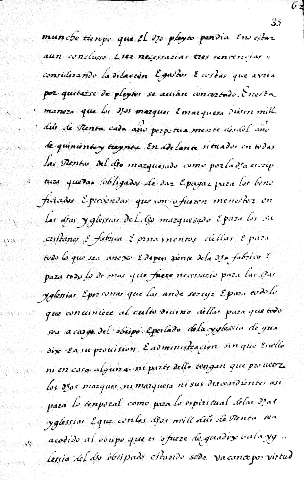 35
mucho tiempo que El dho pleyto pendia En estar
aun concluso E ser necesarias tres sentencias E
considerando la dilaçion E gastos E costas que avria
por quitarse de pleytos se avian concertado En esta
manera que los dhos marques E marquesa diesen mill
dus de Renta cada año perpetuamente desdel año
de quinientos E treynta En adelante situados en todas
las Rentas del dho marquesado como por la dha escrip
tura quedan obligados de dar E pagar para los bene
ficiados E personas que son o fueren menester en
las dhas yglesias del dho marquesado E para los sa
cristanes E fabrica E ornamentos dellas E para
todo lo que sea anexo E dependiente de la dha fabrica E
para todo lo demas que fuere necesario para las dhas
yglesias E personas que las ande servir E para todo lo
que conviniere al culto divino dellas para que todo
sea a cargo del obispo E perlado de la yglesia de gua
dix En su provision E administraçion sin que En ello
ni en cosa alguna ni parte dello tengan que proveer
los dhos marques ni marquesa ni sus descendientes asi
para lo temporal como para lo espiritual de las dhas
yglesias E que con los dhos mill dus de Renta sea
acodido al obispo que es o fuere de guadix o a la yg
lesia del dho obispado estando sede vacante por virtud